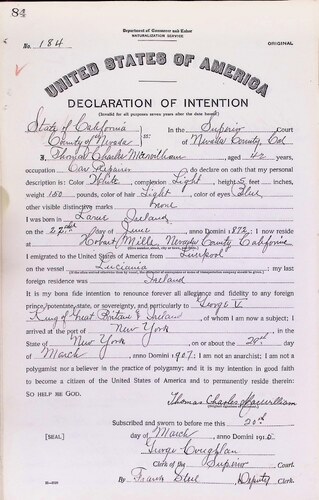 84
Department of Commerce and Labor
NATURALIZATION SERVICE
No. 184
ORIGINAL
UNITED STATES OF AMERICA
DECLARATION OF INTENTION
(Invalid for all purposes seven years after the date hereof)
State of California
County of Nevada
ss:
In the Superior Court
of Nevada County, Cal
I, Thomas Charles Macwilliam, aged 42 years,
occupation Car Repairer, do declare on oath that my personal
description is: Color White, complexion Light, height 5 feet inches,
weight 150 pounds, color of hair Light, color of eyes Blue
other visible distinctive marks none
I was born in Larne Ireland
on the 22nd day of June, anno Domini 1872; I now reside
at Hobart Mills, Nevada County California
I emigrated to the United States of America from Liverpool
on the vessel Lucania; my last
foreign residence was Ireland
It is my bona fide intention to renounce forever all allegiance and fidelity to any foreign
prince, potentate, state, or sovereignty, and particularly to George V.
King of Great Britain & Ireland, of whom I am now a subject; I
arrived at the port of New York, in the
State of New York, on or about the 20th day
of March, anno Domini 1907; I am not an anarchist; I am not a
polygamist nor a believer in the practice of polygamy; and it is my intention in good faith
to become a citizen of the United States of America and to permanently reside therein:
SO HELP ME GOD.
Thomas Charles Macwilliam
(Original signature of declarant.)
Subscribed and sworn to before me this 20th
[SEAL]
day of March, anno Domini 191
George Coughlan
Clerk of the Superior Court.
By Frank Steel Deputy Clerk.